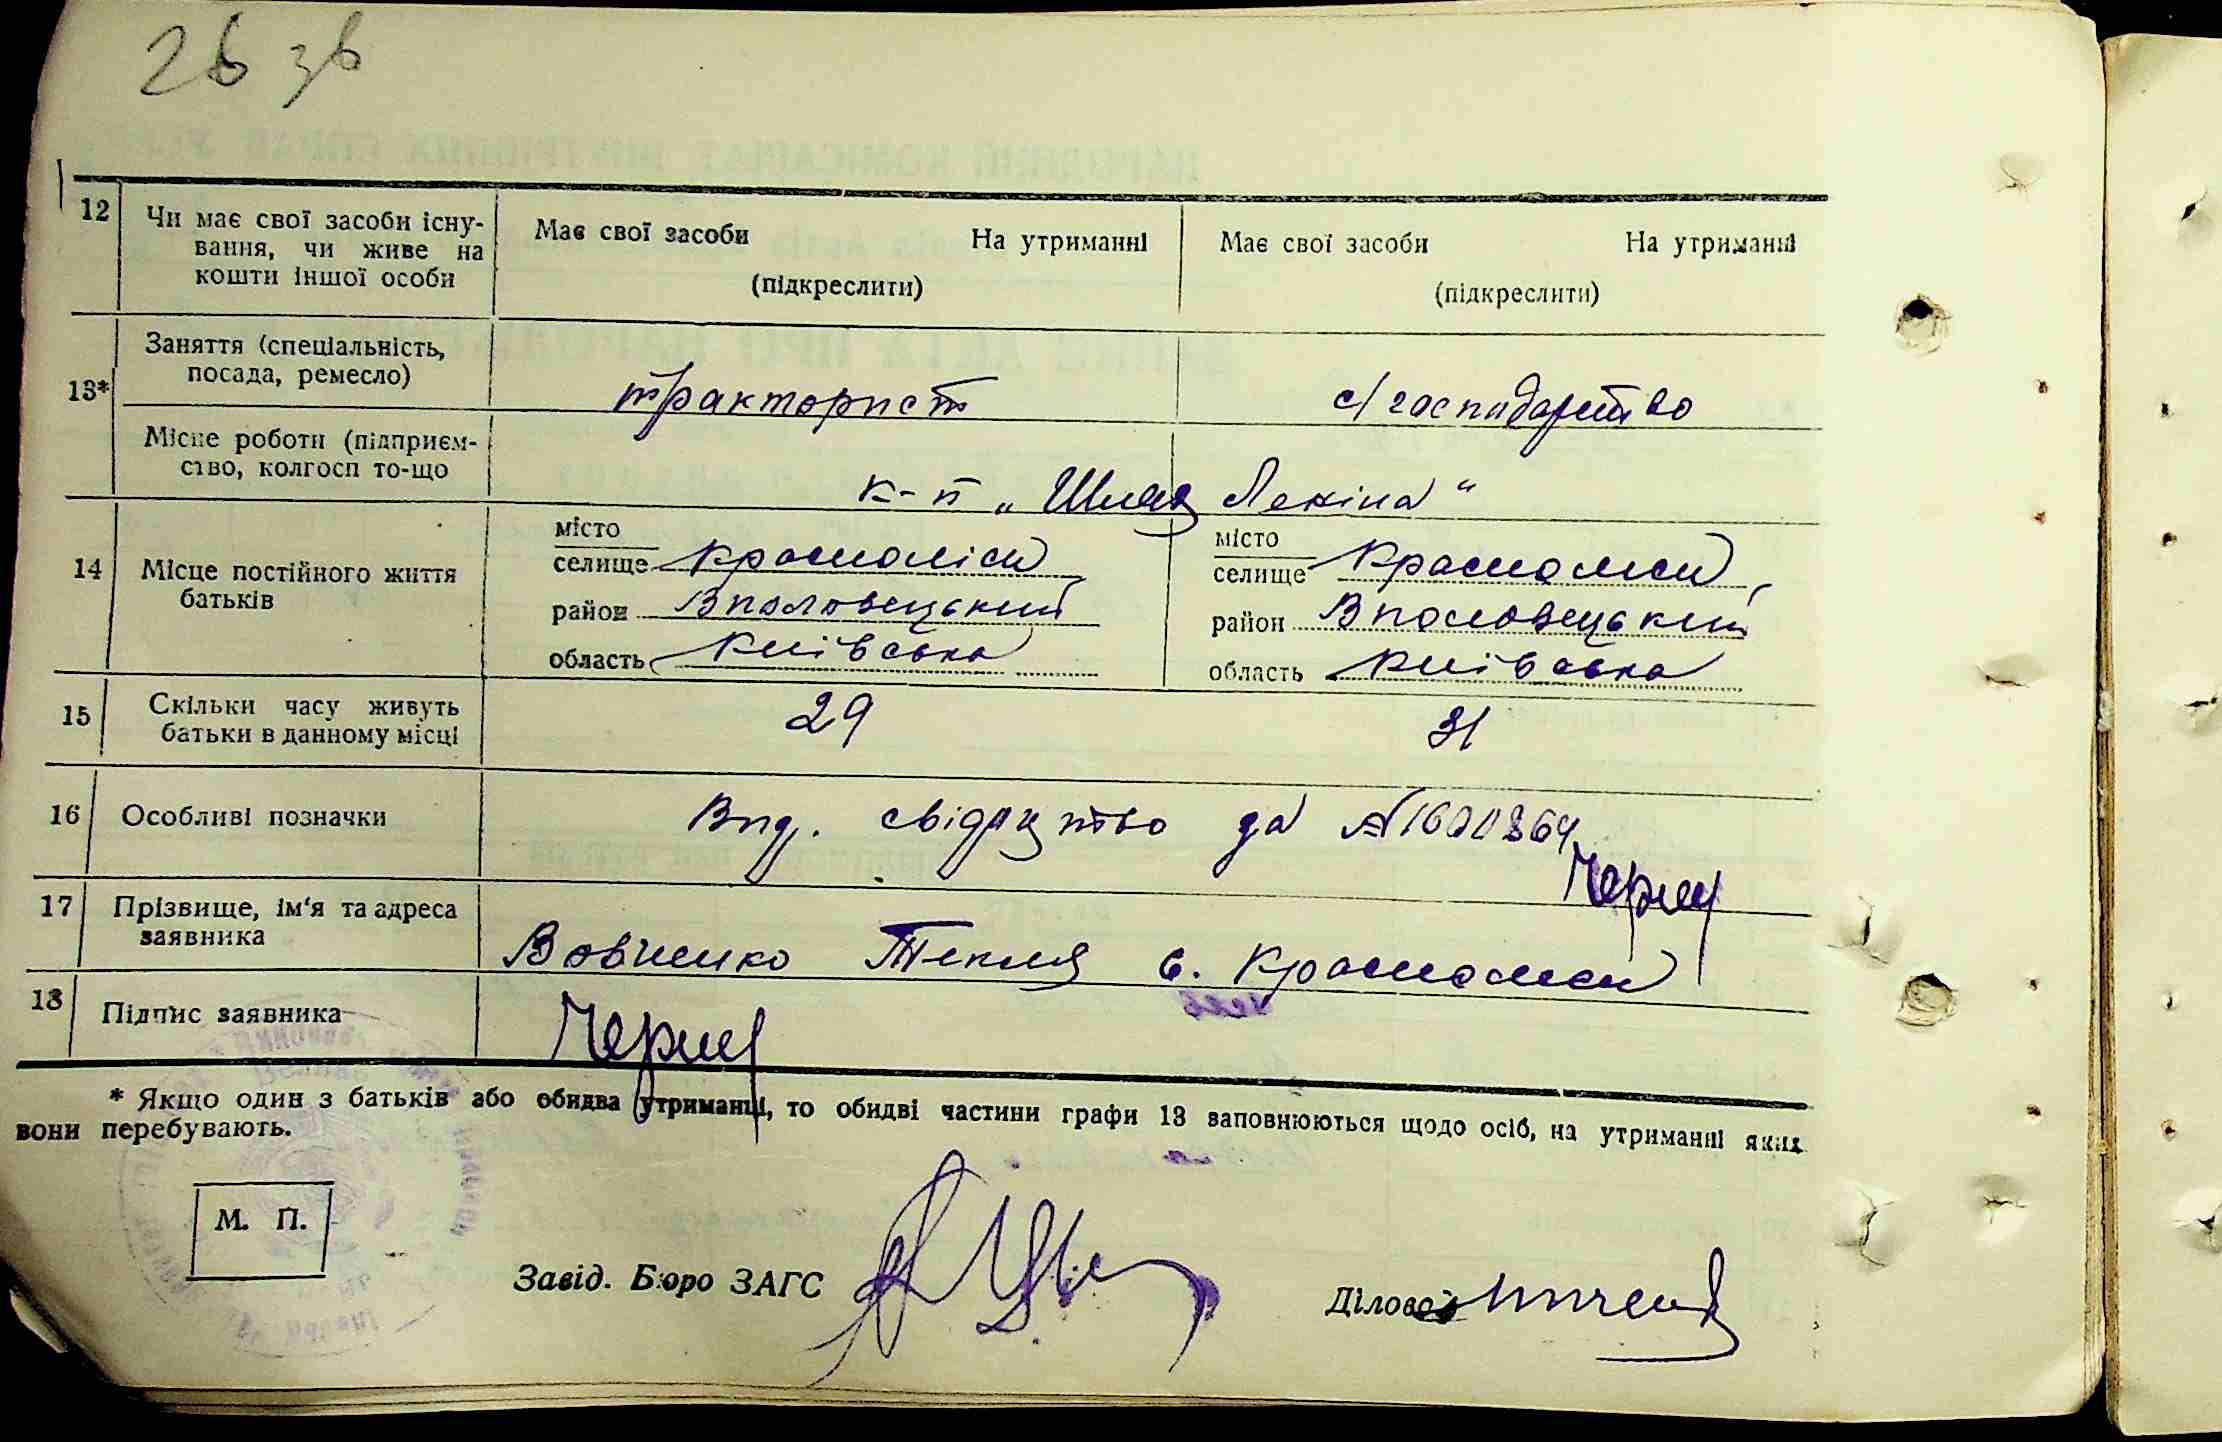 26 зв
12 Чи має свої засоби існу-
вання, чи живе на
кошти іншої особи
Має свої засоби На утриманні
(підкреслити)
Має свої засоби На утриманні
(підкреслити)
13* Заняття (спеціальність,
посада, ремесло)
тракторист
с/господарство
Місце роботи (підприєм-
ство, колгосп то-що
к-п „Шлях Леніна“
14 Місце постійного життя
батьків
місто
селище Красноліси
район Вполовецький
область Київська
місто
селище Краснолєси
район Вполовецький
область Київська
15 Скільки часу живуть
батьки в данному місці
29
31
16 Особливі позначки
Вид. свідоцтво за №1600364
17 Прізвище, ім‘я та адреса
заявника
Вовченко Текля с. Краснолєси
18 Підпис заявника
* Якщо один з батьків або обидва утриманці, то обидві частини графи 13 заповнюються щодо осіб, на утриманні яких
вони перебувають.
М. П.
Завід. Бюро ЗАГС
Діловод